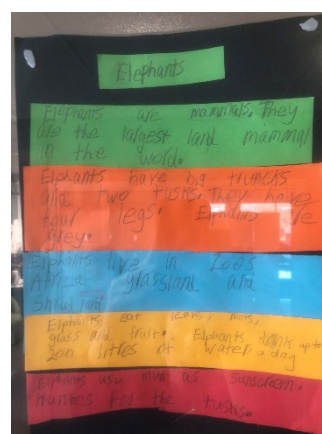 Elephants
Elephants are mammals. They
are the largest land mammal
in the word.
Elphants have big truncks
and two tusks. They have
four legs. Elephants are
grey.
Elephants live in Zoos
Africa grassland and
Elphants eat leaves,
grass and fruit. Elephants drink up to
200 litres of water a day
Elphants usu mud as sunscream.
Huntes for the tusks.